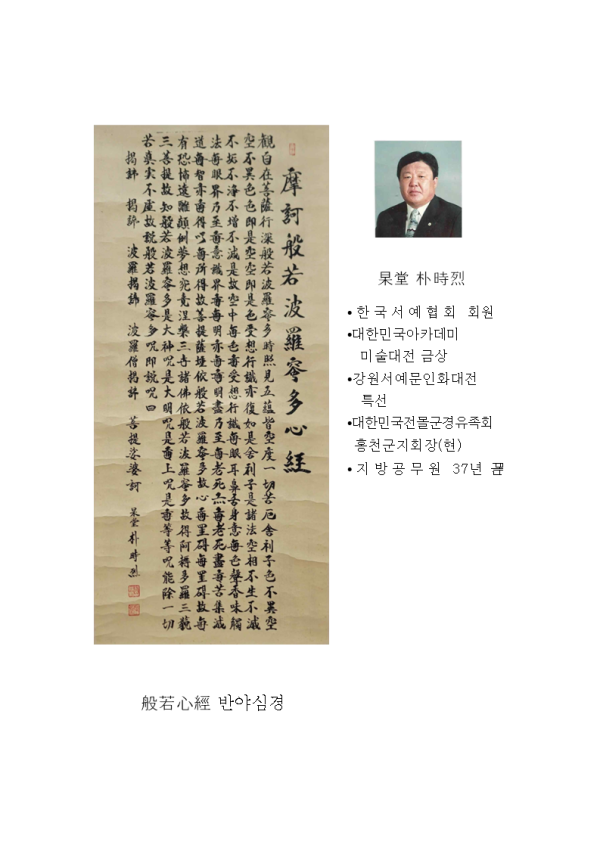 摩訶般若波羅蜜多心經
觀自在菩薩行深般若波羅蜜多時照見五蘊皆空度一切苦厄舍利子色不異空
空不異色色即是空空即是色受想行識亦復如是舍利子是諸法空相不生不滅
不垢不淨不增不減是故空中無色無受想行識無眼耳鼻舌身意無色聲香味觸
法無眼界乃至無意識界無無明亦無無明盡乃至無老死亦無老死盡無苦集滅
道無智亦無得以無所得故菩提薩埵依般若波羅蜜多故心無罣碍無罣碍故無
有恐怖遠離顛倒夢想究竟涅槃三世諸佛依般若波羅蜜多故得阿耨多羅三藐
三菩提故知般若波羅蜜多是大神呪是大明呪是無上呪是無等等呪能除一切
苦真實不虛故說般若波羅蜜多呪即說呪曰
揭諦 揭諦 波羅揭諦 波羅僧揭諦 菩提娑婆訶
杲堂 朴時烈
杲堂 朴時烈
•한국서예협회 회원
•대한민국아카데미
미술대전 금상
•강원서예문인화대전
특선
•대한민국전몰군경유족회
홍천군지회장(현)
•지방공무원 37년
般若心經 반야심경